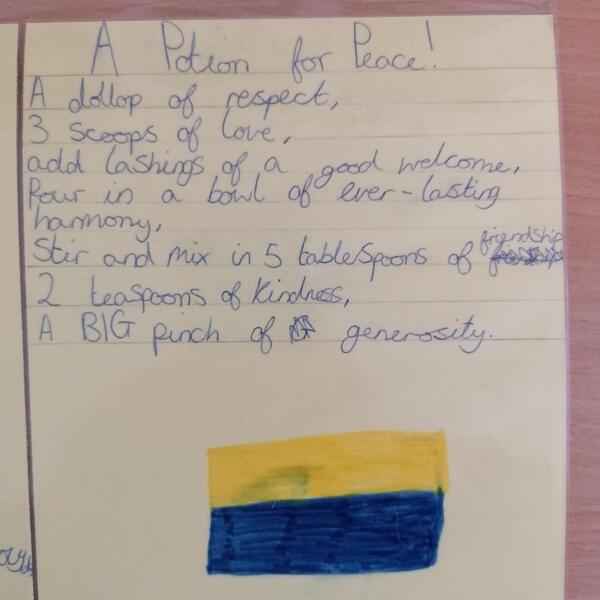 A Potion for Peace!
A dollop of respect,
3 scoops of love,
add lashings of a good welcome,
Pour in a bowl of ever-lasting
harmony,
Stir and mix in 5 tablespoons of friendship
2 teaspoons of kindness,
A BIG pinch of generosity.